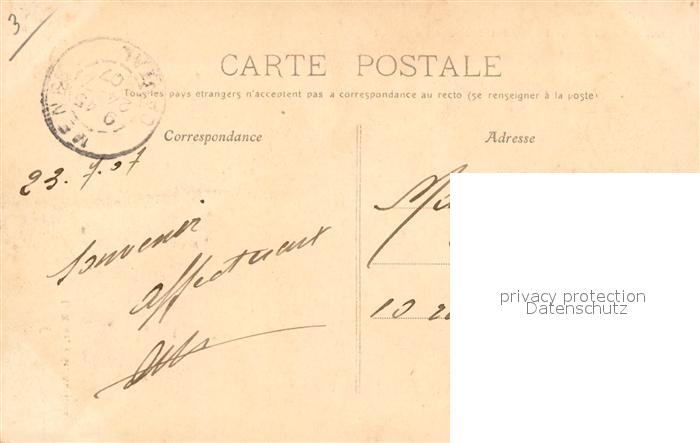 3
CARTE POSTALE
Tous les pays étrangers n'acceptent pas a correspondance au recto (se renseigner à la poste)
Correspondance
Adresse
23.7.07
Souvenir
affectueux
10
privacy protection
Datenschutz